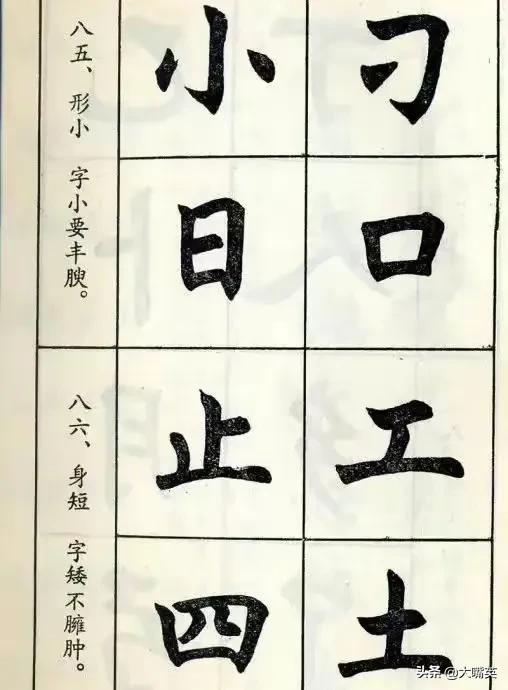 八五、形小 字小要丰腴。
小刁
日口
八六、身短 字矮不臃肿。
止工
四土
头条 @大嘴英